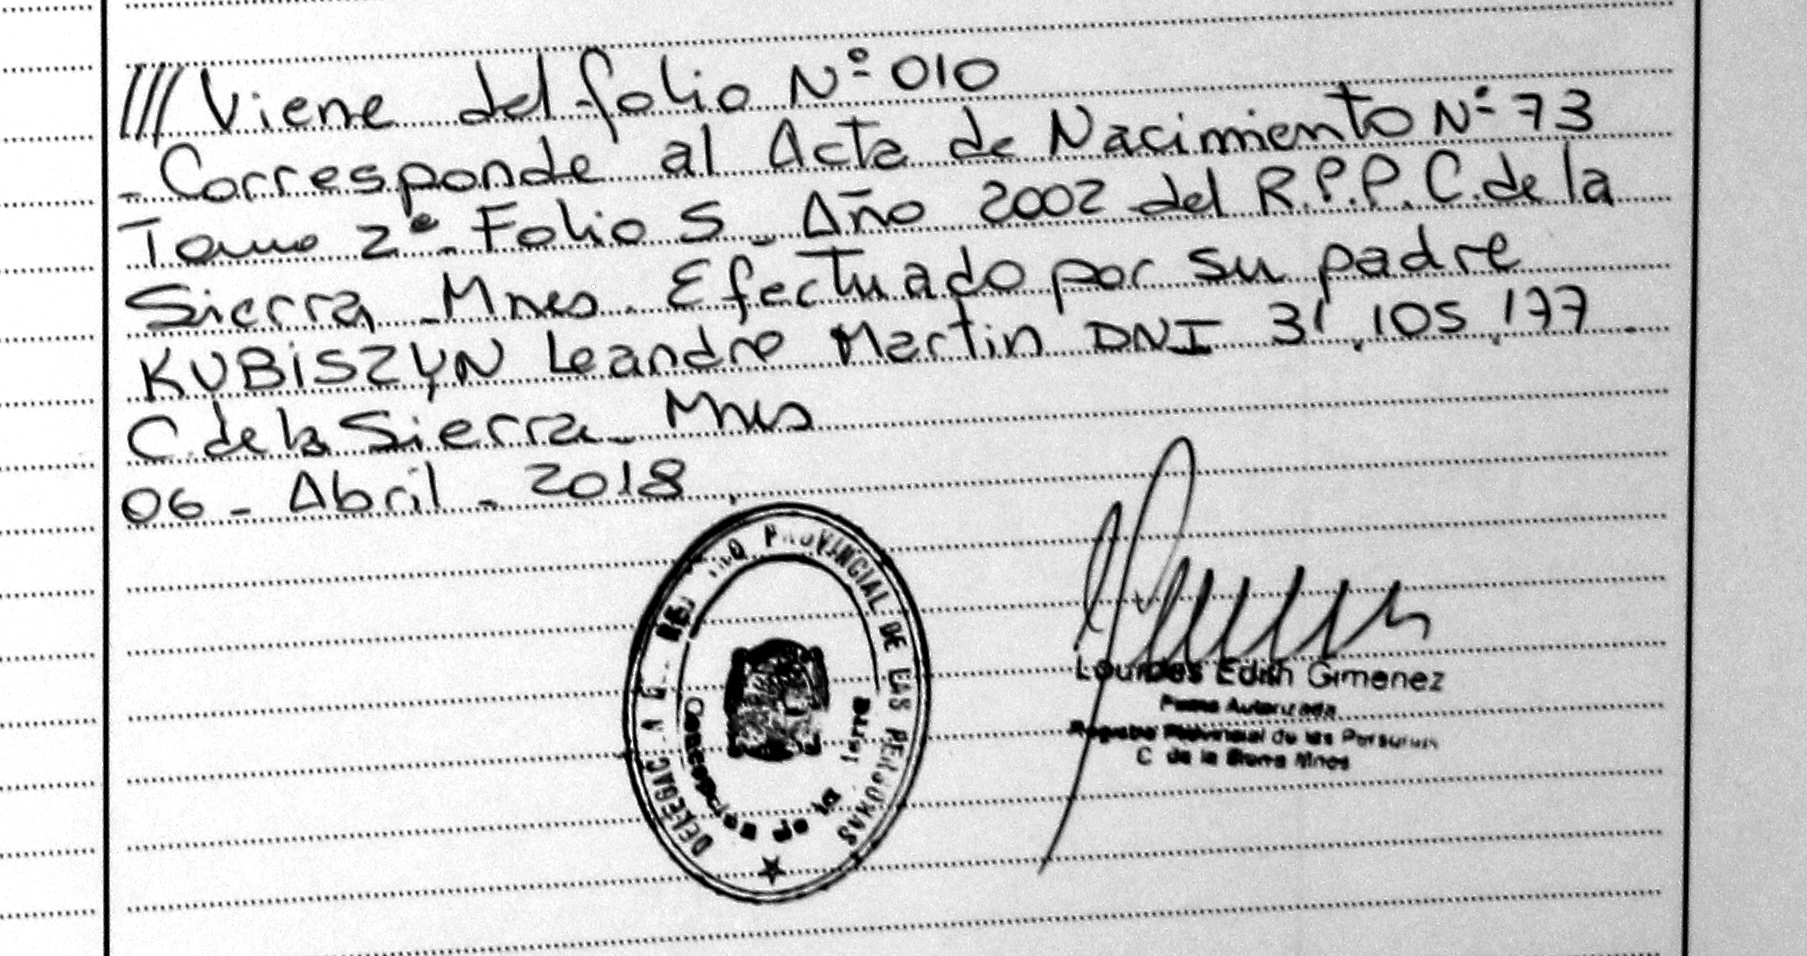 /// Viene del folio Nº 010
- Corresponde al Acta de Nacimiento Nº 73
Tomo 2º - Folio 5 - Año 2002 del R.P.P. C. de la
Sierra - Mnes. Efectuado por su padre
KUBISZYN Leandro Martin DNI 31.105.177
C. de la Sierra - Mnes
06 - Abril - 2018
DELEGACIÓN REGISTRO PROVINCIAL DE LAS PERSONAS
Concepción de la Sierra
Lourdes Edith Gimenez
Firma Autorizada
Registro Provincial de las Personas
C de la Sierra Mnes